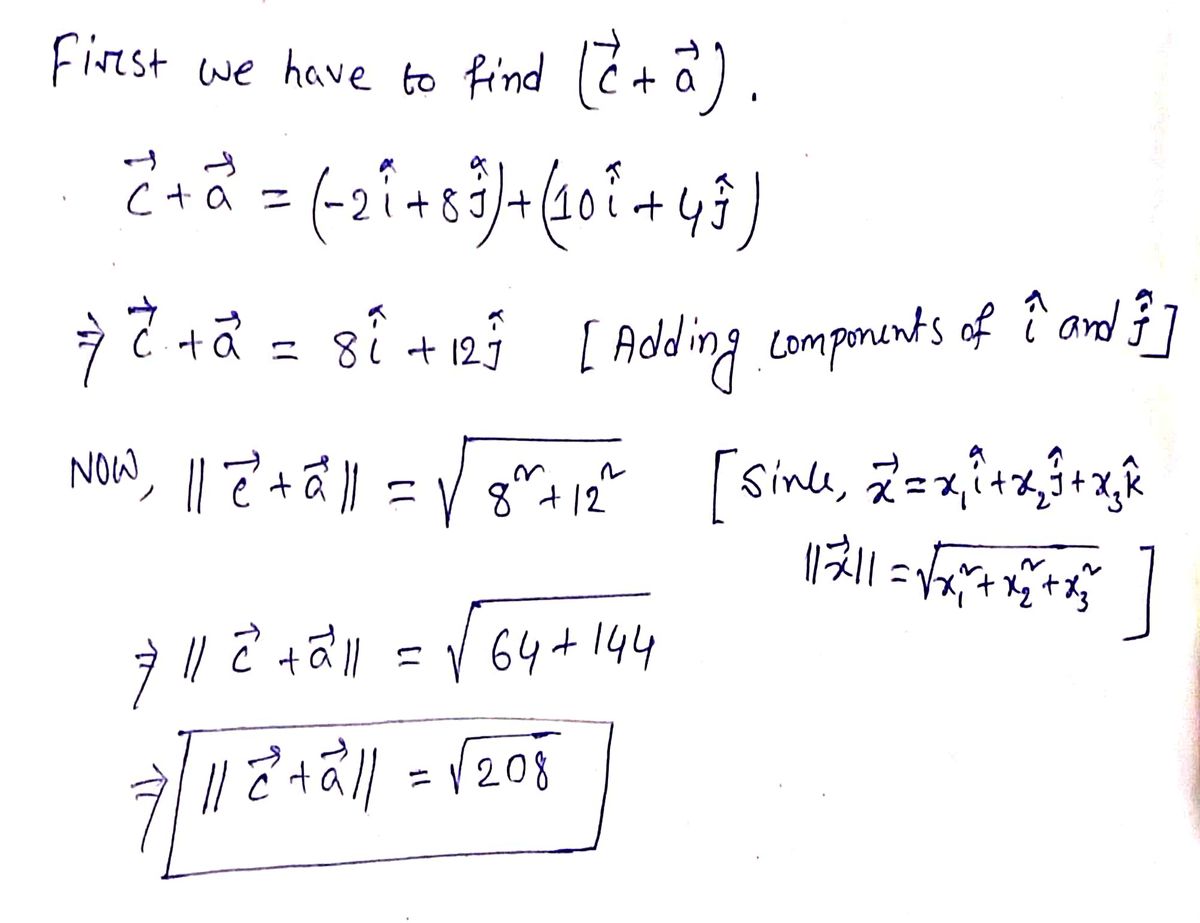 First we have to find (c⃗ + a⃗).
c⃗ + a⃗ = (-2î + 8ĵ) + (10î + 4ĵ)
⇒ c⃗ + a⃗ = 8î + 12ĵ [Adding components of î and ĵ]
NOW, ||c⃗ + a⃗|| = √(8² + 12²) [Since, x⃗ = x₁î + x₂ĵ + x₃k̂
||x⃗|| = √(x₁² + x₂² + x₃²)]
⇒ ||c⃗ + a⃗|| = √(64 + 144)
⇒ ||c⃗ + a⃗|| = √208